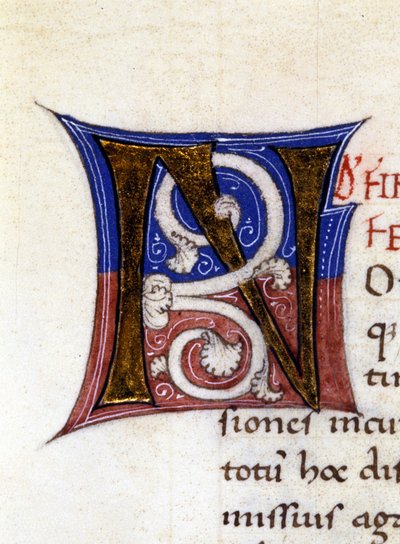 N
FI
FE
O
q
tin
siones incu
totū hoc dis
missius agr